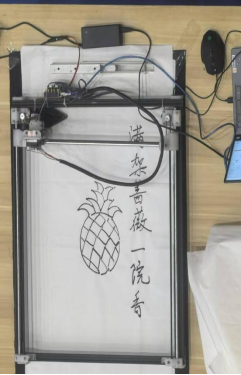 满架蔷薇一院香